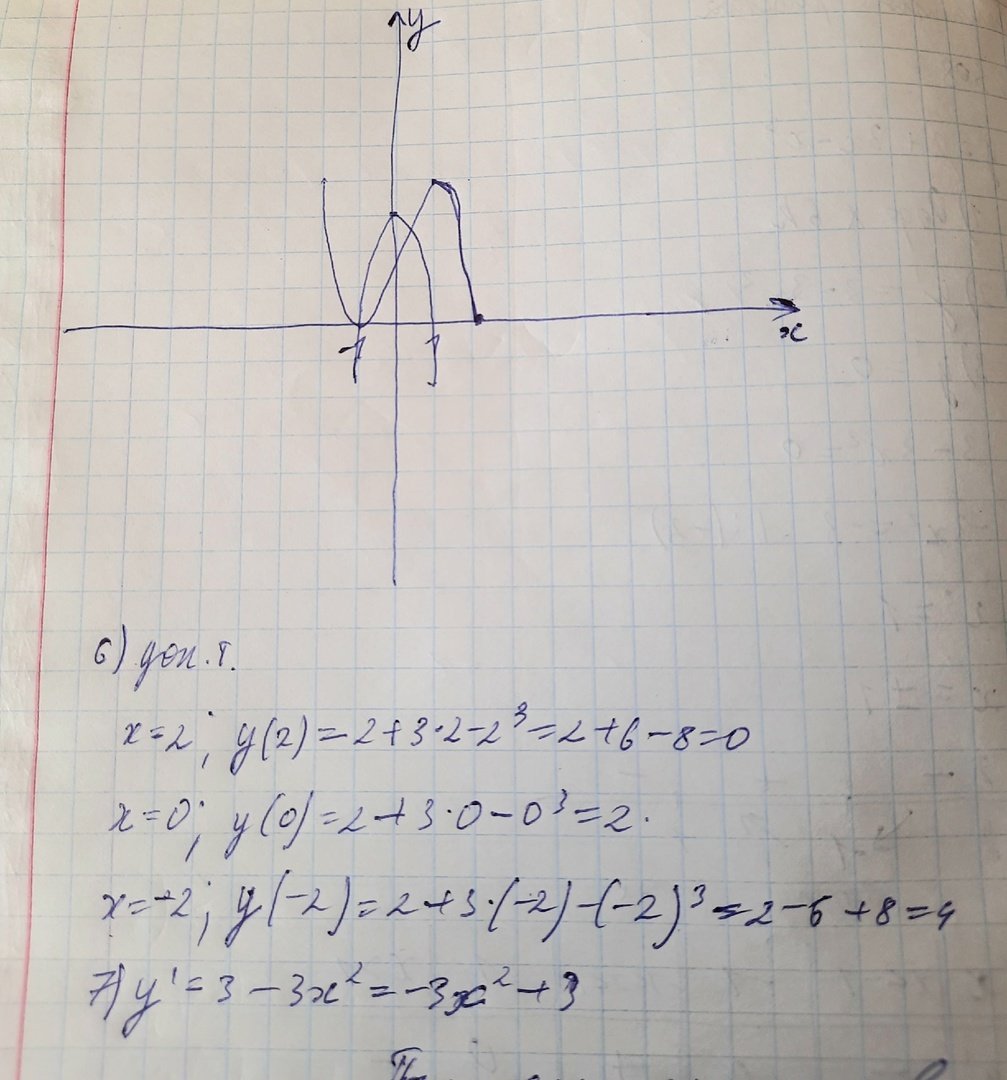 y
x
-1 1
6) доп. т.
x=2; y(2)=2+3·2-2³=2+6-8=0
x=0; y(0)=2+3·0-0³=2.
x=-2; y(-2)=2+3·(-2)-(-2)³=2-6+8=4
7) y'=3-3x²=-3x²+3